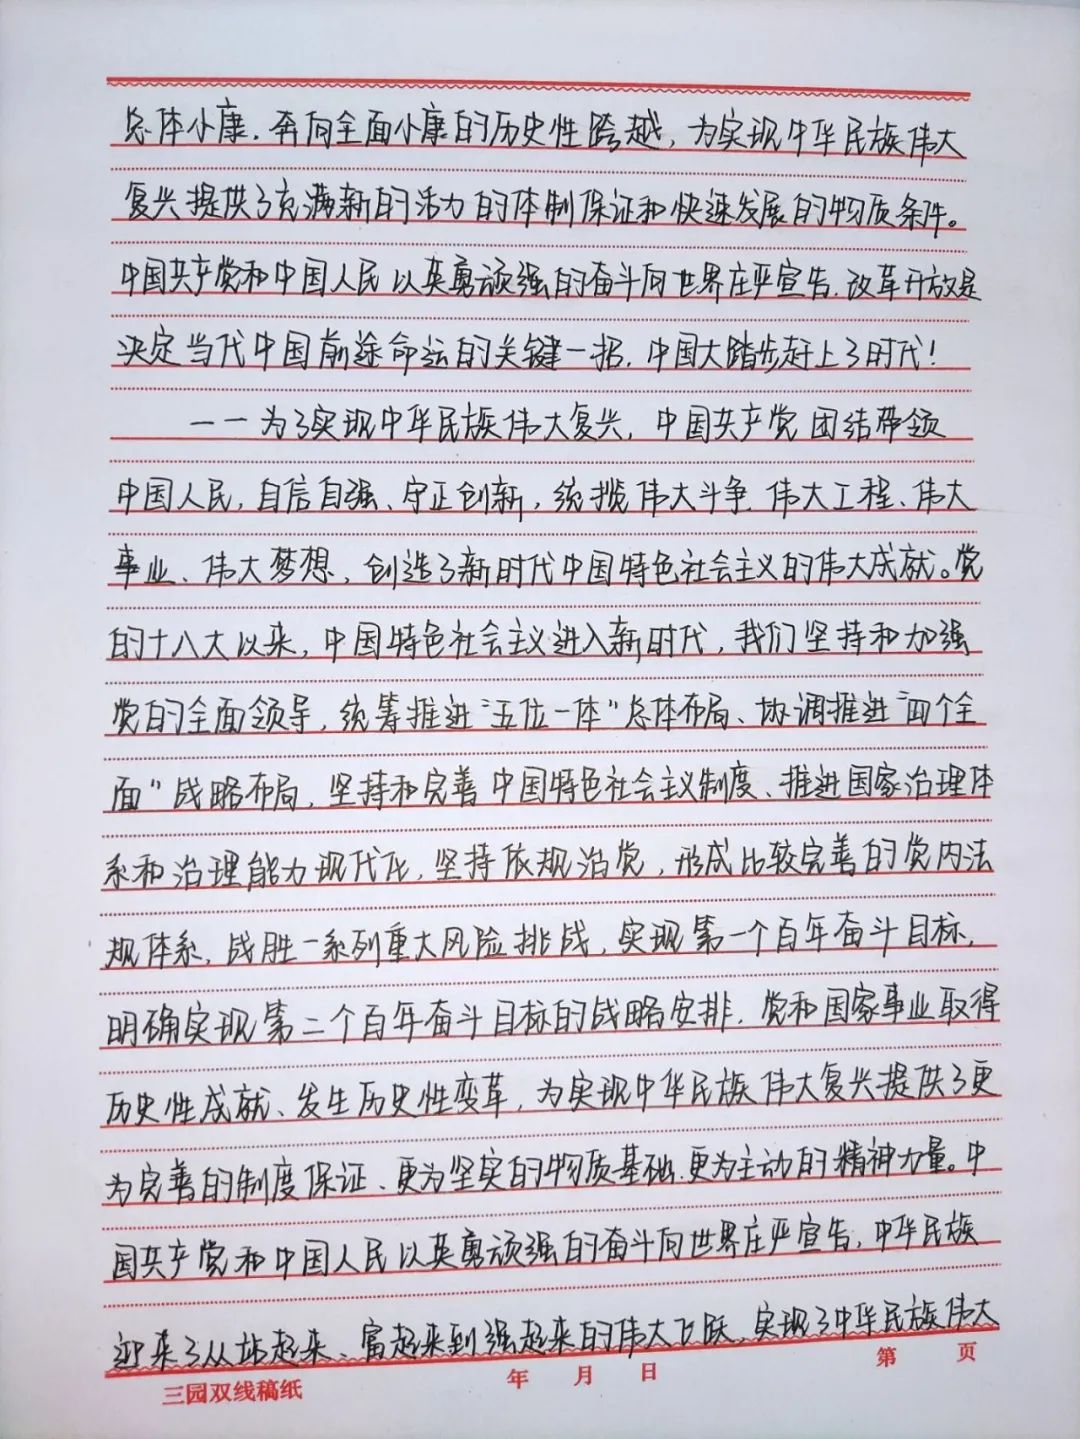 总体小康,奔向全面小康的历史性跨越,为实现中华民族伟大
复兴提供了充满新的活力的体制保证和快速发展的物质条件。
中国共产党和中国人民以英勇顽强的奋斗向世界庄严宣告,改革开放是
决定当代中国前途命运的关键一招,中国大踏步赶上了时代!
——为了实现中华民族伟大复兴,中国共产党团结带领
中国人民,自信自强、守正创新,统揽伟大斗争、伟大工程、伟大
事业、伟大梦想,创造了新时代中国特色社会主义的伟大成就。党
的十八大以来,中国特色社会主义进入新时代,我们坚持和加强
党的全面领导,统筹推进“五位一体”总体布局、协调推进“四个全
面”战略布局,坚持和完善中国特色社会主义制度、推进国家治理体
系和治理能力现代化,坚持依规治党,形成比较完善的党内法
规体系,战胜一系列重大风险挑战,实现第一个百年奋斗目标,
明确实现第二个百年奋斗目标的战略安排,党和国家事业取得
历史性成就、发生历史性变革,为实现中华民族伟大复兴提供了更
为完善的制度保证、更为坚实的物质基础、更为主动的精神力量。中
国共产党和中国人民以英勇顽强的奋斗向世界庄严宣告,中华民族
迎来了从站起来、富起来到强起来的伟大飞跃,实现了中华民族伟大
三园双线稿纸 年 月 日 第 页